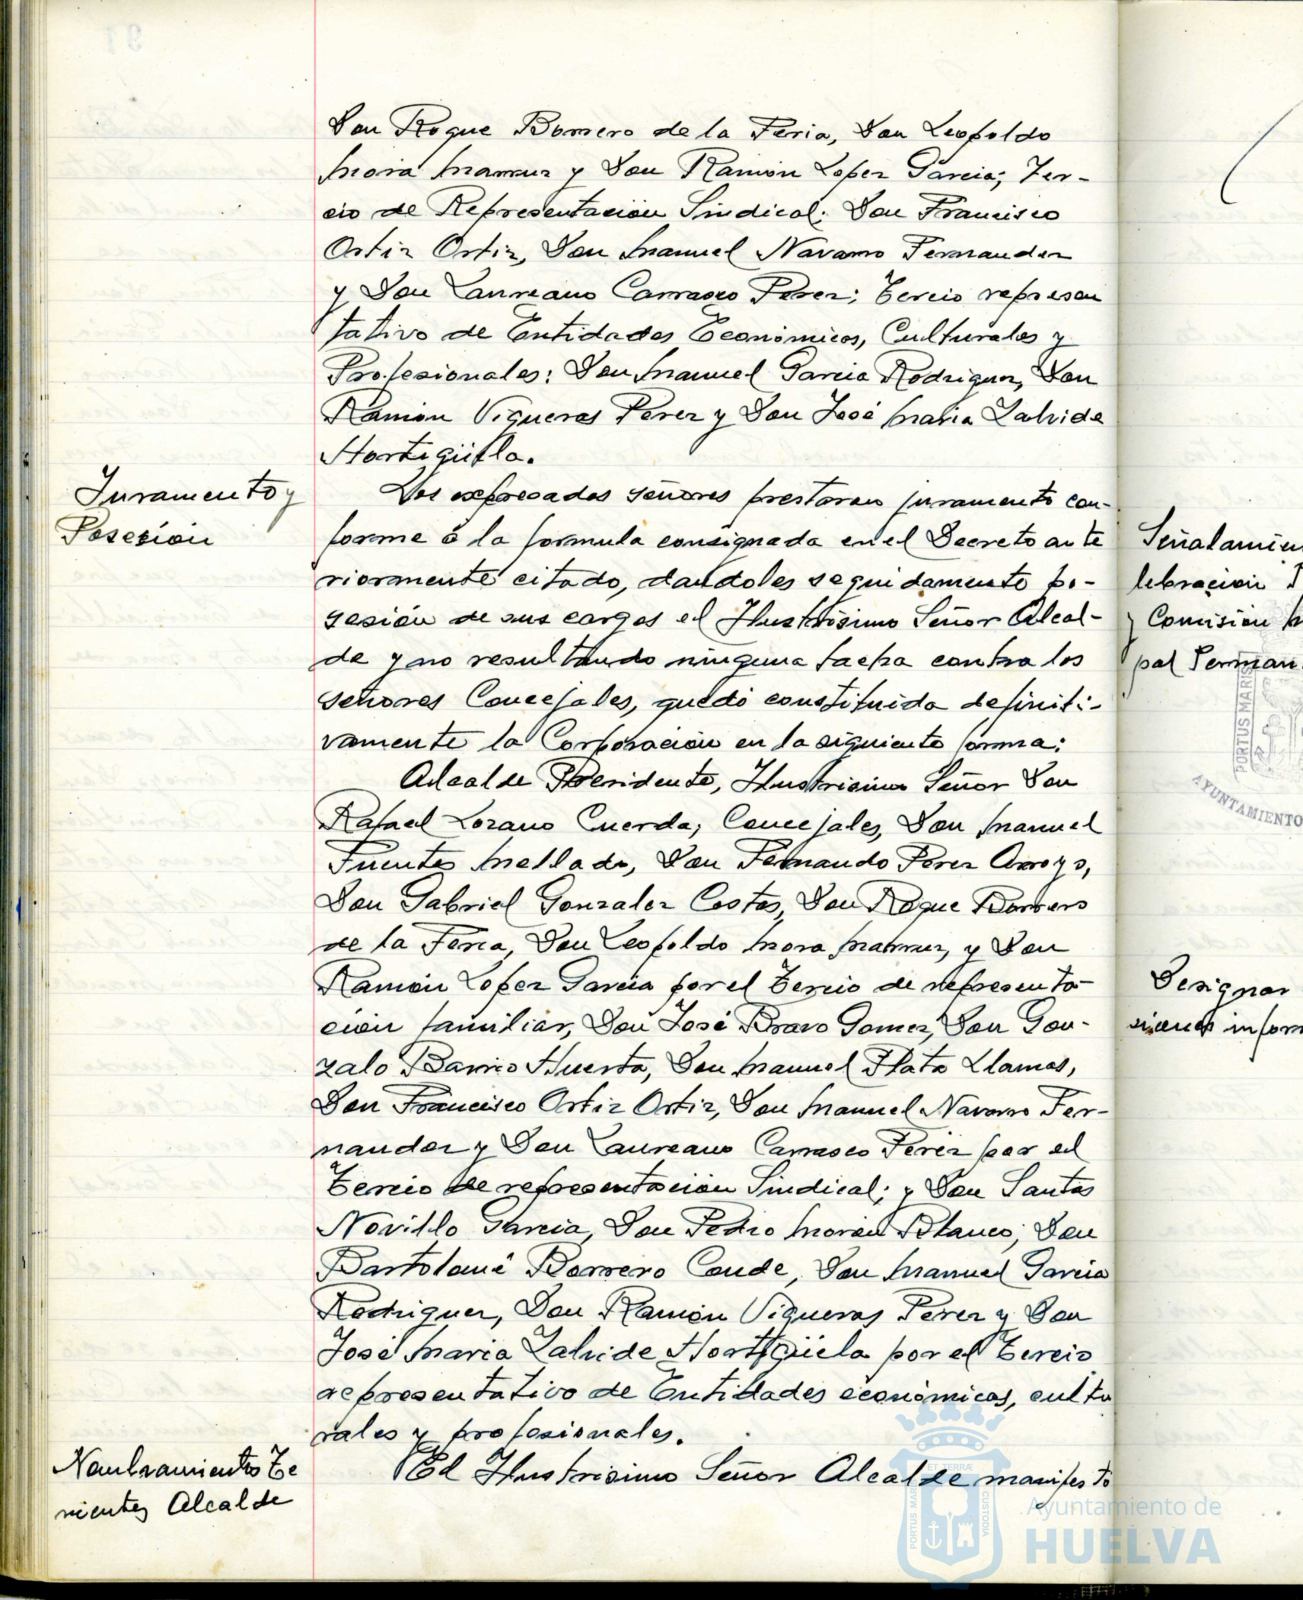 Don Roque Borrero de la Feria, Don Leopoldo
Mora Mamruz y Don Ramón Lopez Garcia; Ter-
cio de Representación Sindical: Don Francisco
Ortiz Ortiz, Don Manuel Navarro Fernandez
y Don Laureano Carrasco Perez; Tercio represen
tativo de Entidades Económicas, Culturales y
Profesionales: Don Manuel Garcia Rodriguez, Don
Ramón Vigueras Perez y Don José Maria Zalvide
Hortigüela.
Juramento y
Posesión
Los expresados señores prestaron juramento con-
forme á la formula consignada en el Decreto ante
riormente citado, dandoles seguidamente po-
sesión de sus cargos el Ilustrisimo Señor Alcal-
de y no resultando ninguna tacha contra los
señores Concejales, quedó constituida definiti-
vamente la Corporación en la siguiente forma:
Alcalde Presidente, Ilustrisimo Señor Don
Rafael Lozano Cuerda; Concejales, Don Manuel
Fuentes Mellado, Don Fernando Perez Arroyo,
Don Gabriel Gonzalez Costas, Don Roque Borrero
de la Feria, Don Leopoldo Mora Mamruz, y Don
Ramón Lopez Garcia por el Tercio de representa-
ción familiar, Don José Bravo Gomez, Don Gon-
zalo Barrio Huerta, Don Manuel Plata Llamas,
Don Francisco Ortiz Ortiz, Don Manuel Navarro Fer-
nandez y Don Laureano Carrasco Perez por el
Tercio de representación Sindical; y Don Santos
Novillo Garcia, Don Pedro Morón Blanco, Don
Bartolomé Borrero Conde, Don Manuel Garcia
Rodriguez, Don Ramón Vigueras Perez y Don
José Maria Zalvide Hortigüela por el Tercio
representativo de Entidades económicas, cultu
rales y profesionales.
Nombramientos Te
nientes Alcalde
El Ilustrisimo Señor Alcalde manifestó
Señalamien
lebración
y Comisión M
pal Perman
PORTUS MARIS
AYUNTAMIENTO
Designar
siones inform
PORTUS MARIS ET TERRÆ CUSTODIA
Ayuntamiento de
HUELVA